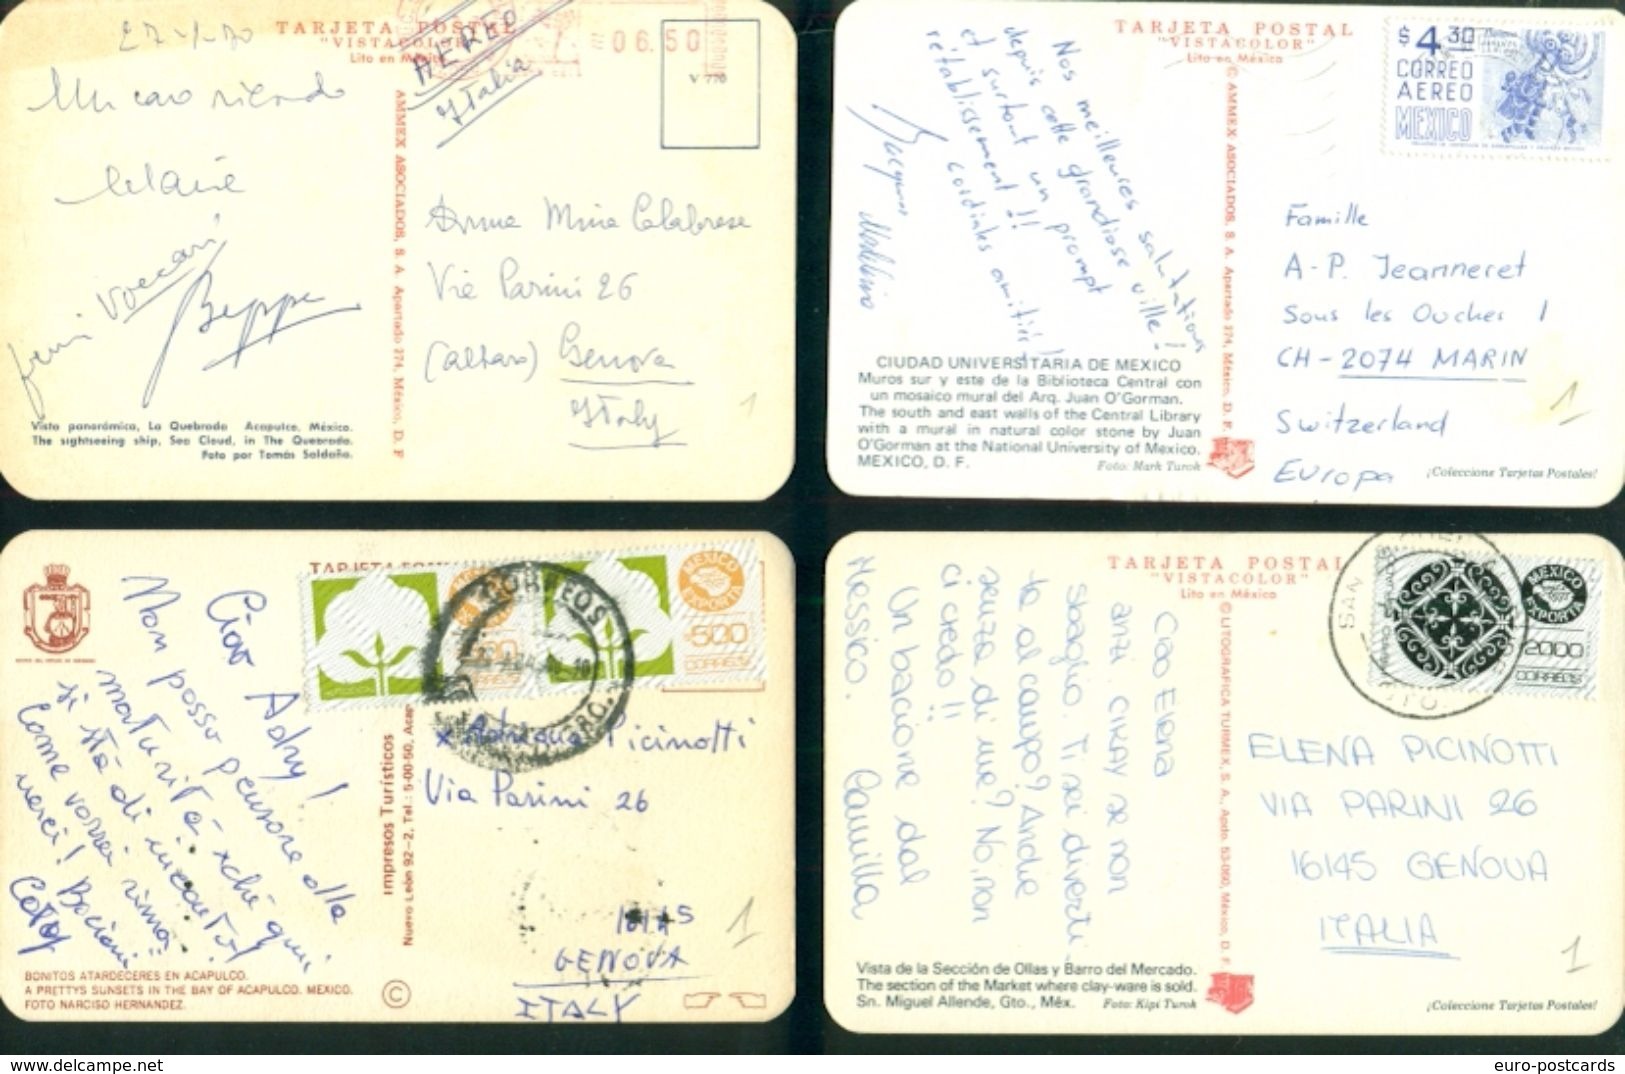 27-1-70
TARJETA POSTAL
"VISTACOLOR"
Lito en México
AEREO
Italia
06.50
V 770
Un caro ricordo
Beppe
Anna Mina Calabrese
Via Parini 26
(Albaro) Genova
Italy
AMMEX ASOCIADOS, S. A. Apartado 274, México, D. F
Vista panorámica, La Quebrada Acapulco, México.
The sightseeing ship, Sea Cloud, in The Quebrada.
Foto por Tomás Saldaña.
1
TARJETA POSTAL
"VISTACOLOR"
Lito en México
$4.30
CORREO
AEREO
MEXICO
Nos meilleures salutations
depuis cette grandiose ville!
et surtout un prompt
rétablissement!!
cordiales amitiés!
© AMMEX ASOCIADOS, S. A. Apartado 274, México, D. F.
Famille
A-P. Jeanneret
Sous les Ouches 1
CH-2074 MARIN
Switzerland
Europa
CIUDAD UNIVERSITARIA DE MEXICO
Muros sur y este de la Biblioteca Central con
un mosaico mural del Arq. Juan O'Gorman.
The south and east walls of the Central Library
with a mural in natural color stone by Juan
O'Gorman at the National University of Mexico.
MEXICO, D. F.
Foto: Mark Turok
¡Coleccione Tarjetas Postales!
1
TARJETA
MEXICO
CORREOS
MEXICO
EXPORTA
500
CORREOS
Ciao Adry!
Non posso pensare alla
maturità xchè qui
si sta di incanto!
Come vorrei rima-
nerci! Bacioni
Caty
x Adriana Picinotti
Via Parini 26
16145
GENOVA
ITALY
Impresos Turísticos
Nuevo León 92-2, Tel.: 5-00-50, Aca
BONITOS ATARDECERES EN ACAPULCO.
A PRETTYS SUNSETS IN THE BAY OF ACAPULCO. MEXICO.
FOTO NARCISO HERNANDEZ.
©
1
TARJETA POSTAL
"VISTACOLOR"
Lito en México
SAN
GTO.
MEXICO
EXPORTA
2000
CORREOS
Ciao Elena
anzi, CIKAY se non
sbaglio. Ti sei diverti-
ta al campo? Anche
senza di me? No, non
ci credo!!
Un bacione dal
Messico. Camilla
© LITOGRAFICA TURMEX, S. A., Apdo. 53-060, México, D. F.
ELENA PICINOTTI
VIA PARINI 26
16145 GENOVA
ITALIA
Vista de la Sección de Ollas y Barro del Mercado.
The section of the Market where clay-ware is sold.
Sn. Miguel Allende, Gto., Méx.
Foto: Kipi Turok
¡Coleccione Tarjetas Postales!
1
www.delcampe.net
euro-postcards